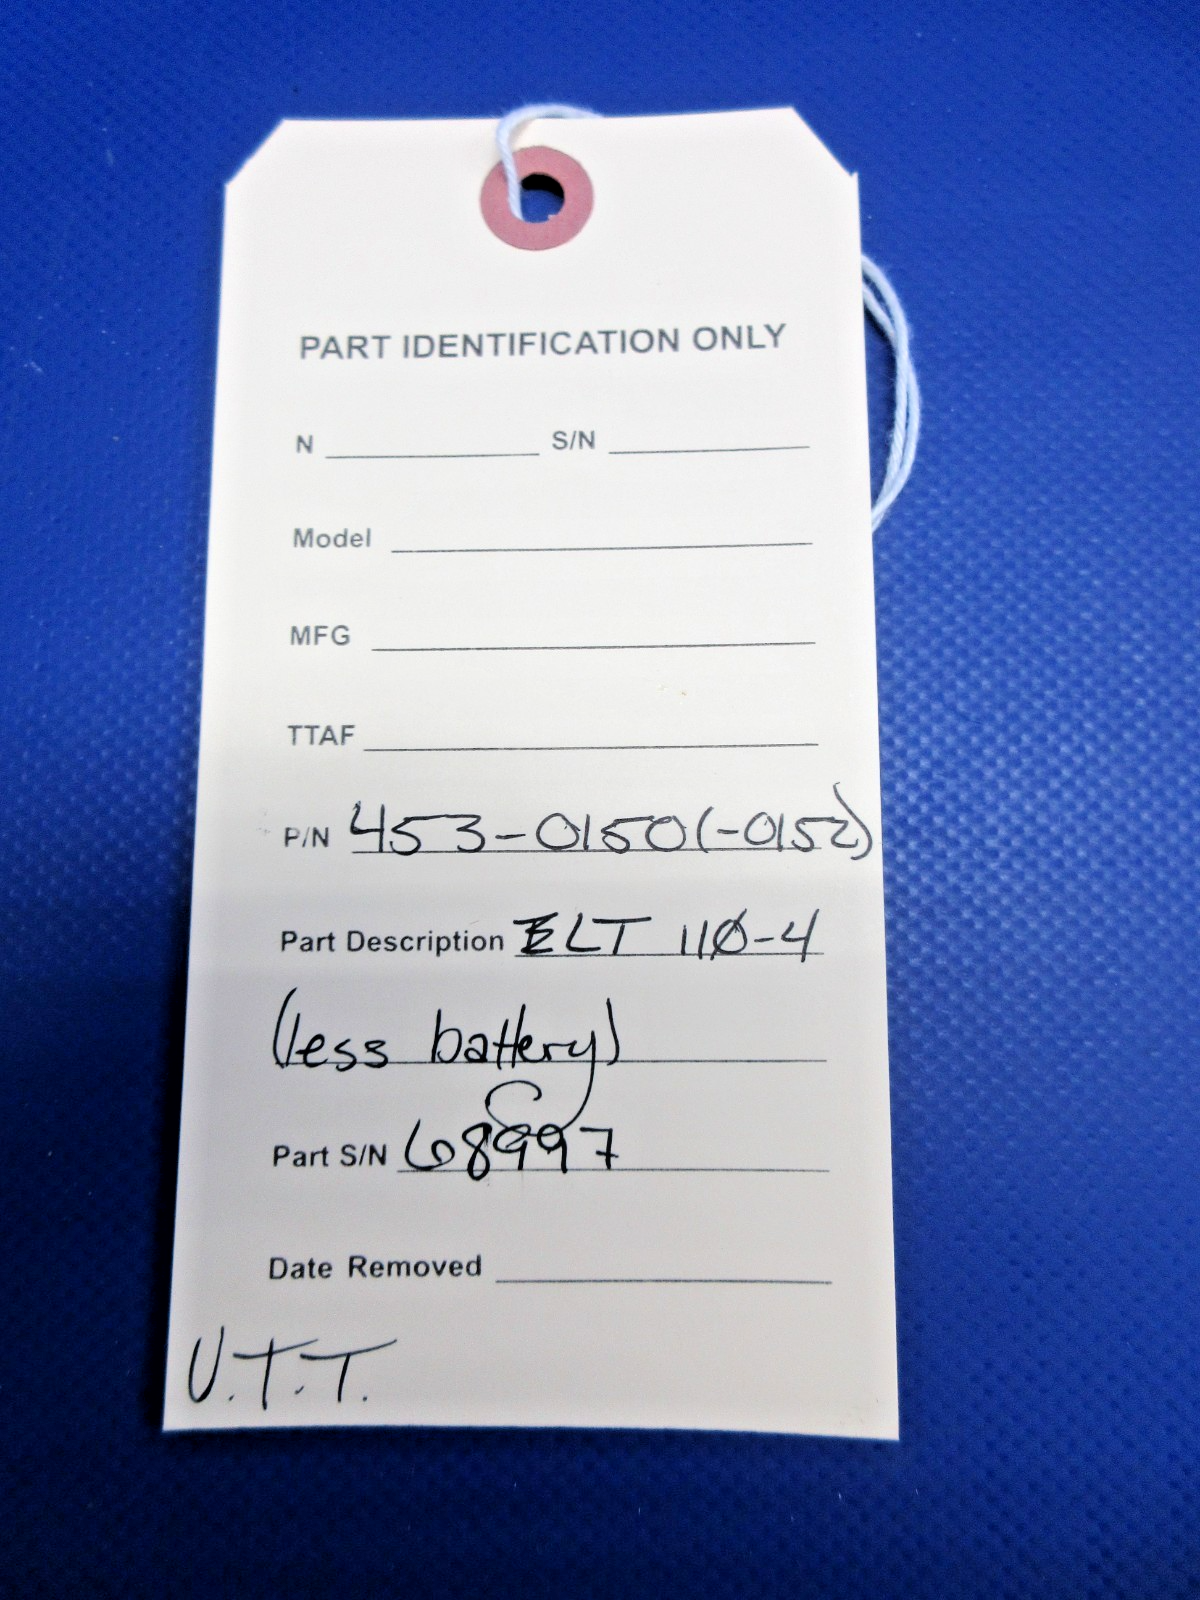 PART IDENTIFICATION ONLY
N S/N
Model
MFG
TTAF
P/N 453-0150(-0152)
Part Description ELT 110-4
(less battery)
Part S/N 68997
Date Removed
U.T.T.